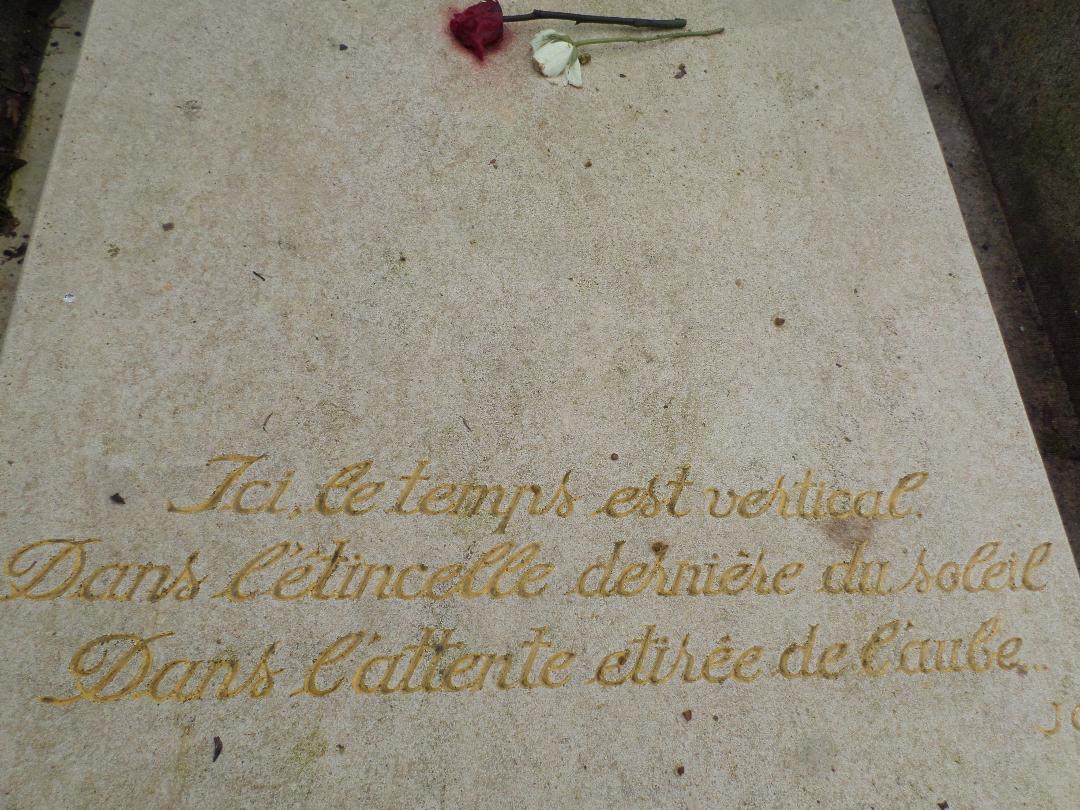 Ici, le temps est vertical.
Dans l'étincelle dernière du soleil
Dans l'attente etirée de l'aube...